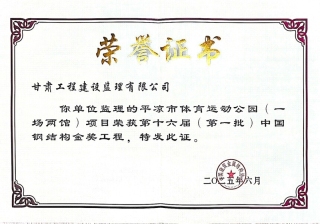 荣誉证书
甘肃工程建设监理有限公司
你单位监理的平凉市体育运动公园（一
场两馆）项目荣获第十六届（第一批）中国
钢结构金奖工程，特发此证。
二〇二五年六月